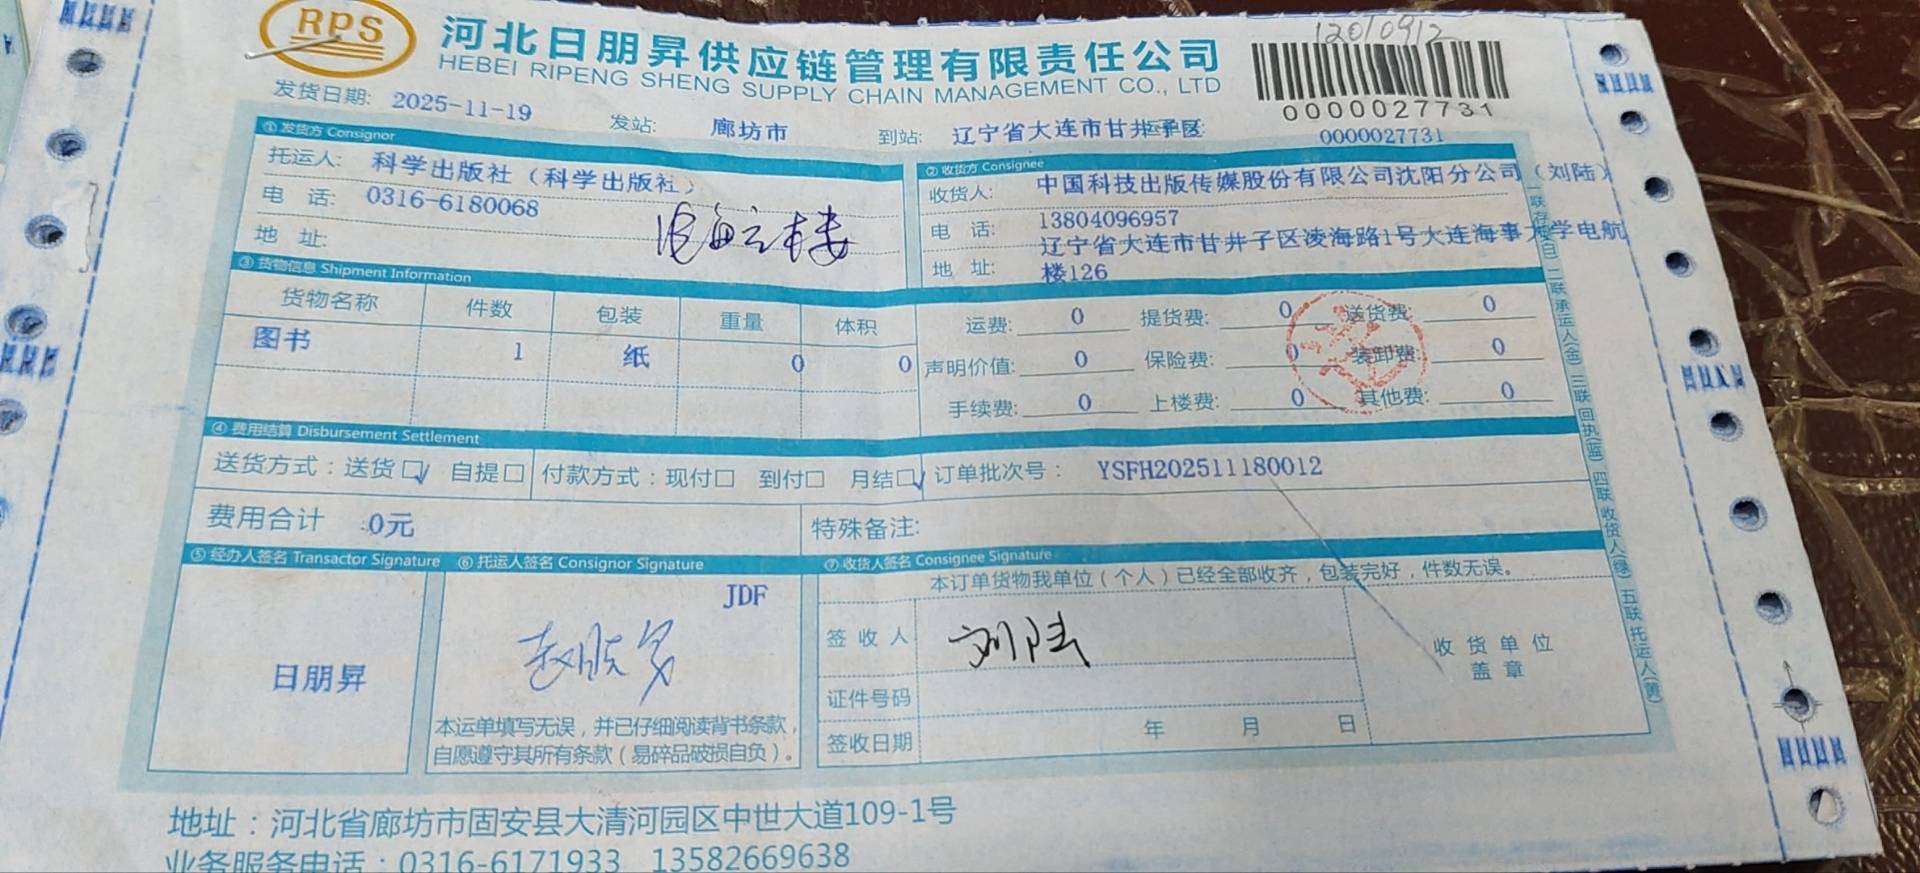 RPS
河北日朋昇供应链管理有限责任公司
HEBEI RIPENG SHENG SUPPLY CHAIN MANAGEMENT CO., LTD
12010912
0000027731
发货日期: 2025-11-19 发站: 廊坊市 到站: 辽宁省大连市甘井子区 0000027731
① 发货方 Consignor
托运人: 科学出版社（科学出版社）
电 话: 0316-6180068
地 址:
② 收货方 Consignee
收货人: 中国科技出版传媒股份有限公司沈阳分公司（刘陆）
电 话: 13804096957
地 址: 辽宁省大连市甘井子区凌海路1号大连海事大学电航
楼126
③ 货物信息 Shipment Information
货物名称 件数 包装 重量 体积
图书 1 纸 0 0
运费: 0 提货费: 0 送货费: 0
声明价值: 0 保险费: 0 装卸费: 0
手续费: 0 上楼费: 0 其他费: 0
④ 费用结算 Disbursement Settlement
送货方式：送货☑ 自提□ 付款方式：现付□ 到付□ 月结☑ 订单批次号： YSFH202511180012
费用合计 0元 特殊备注:
⑤ 经办人签名 Transactor Signature
日朋昇
⑥ 托运人签名 Consignor Signature
JDF
本运单填写无误，并已仔细阅读背书条款，
自愿遵守其所有条款（易碎品破损自负）。
⑦ 收货人签名 Consignee Signature
本订单货物我单位（个人）已经全部收齐，包装完好，件数无误。
签 收 人 刘陆
证件号码
签收日期 年 月 日
收 货 单 位
盖 章
二联承运人(金) 三联回执(蓝) 四联收货人(绿) 五联托运人(黄)
地址：河北省廊坊市固安县大清河园区中世大道109-1号
业务服务电话：0316-6171933 13582669638